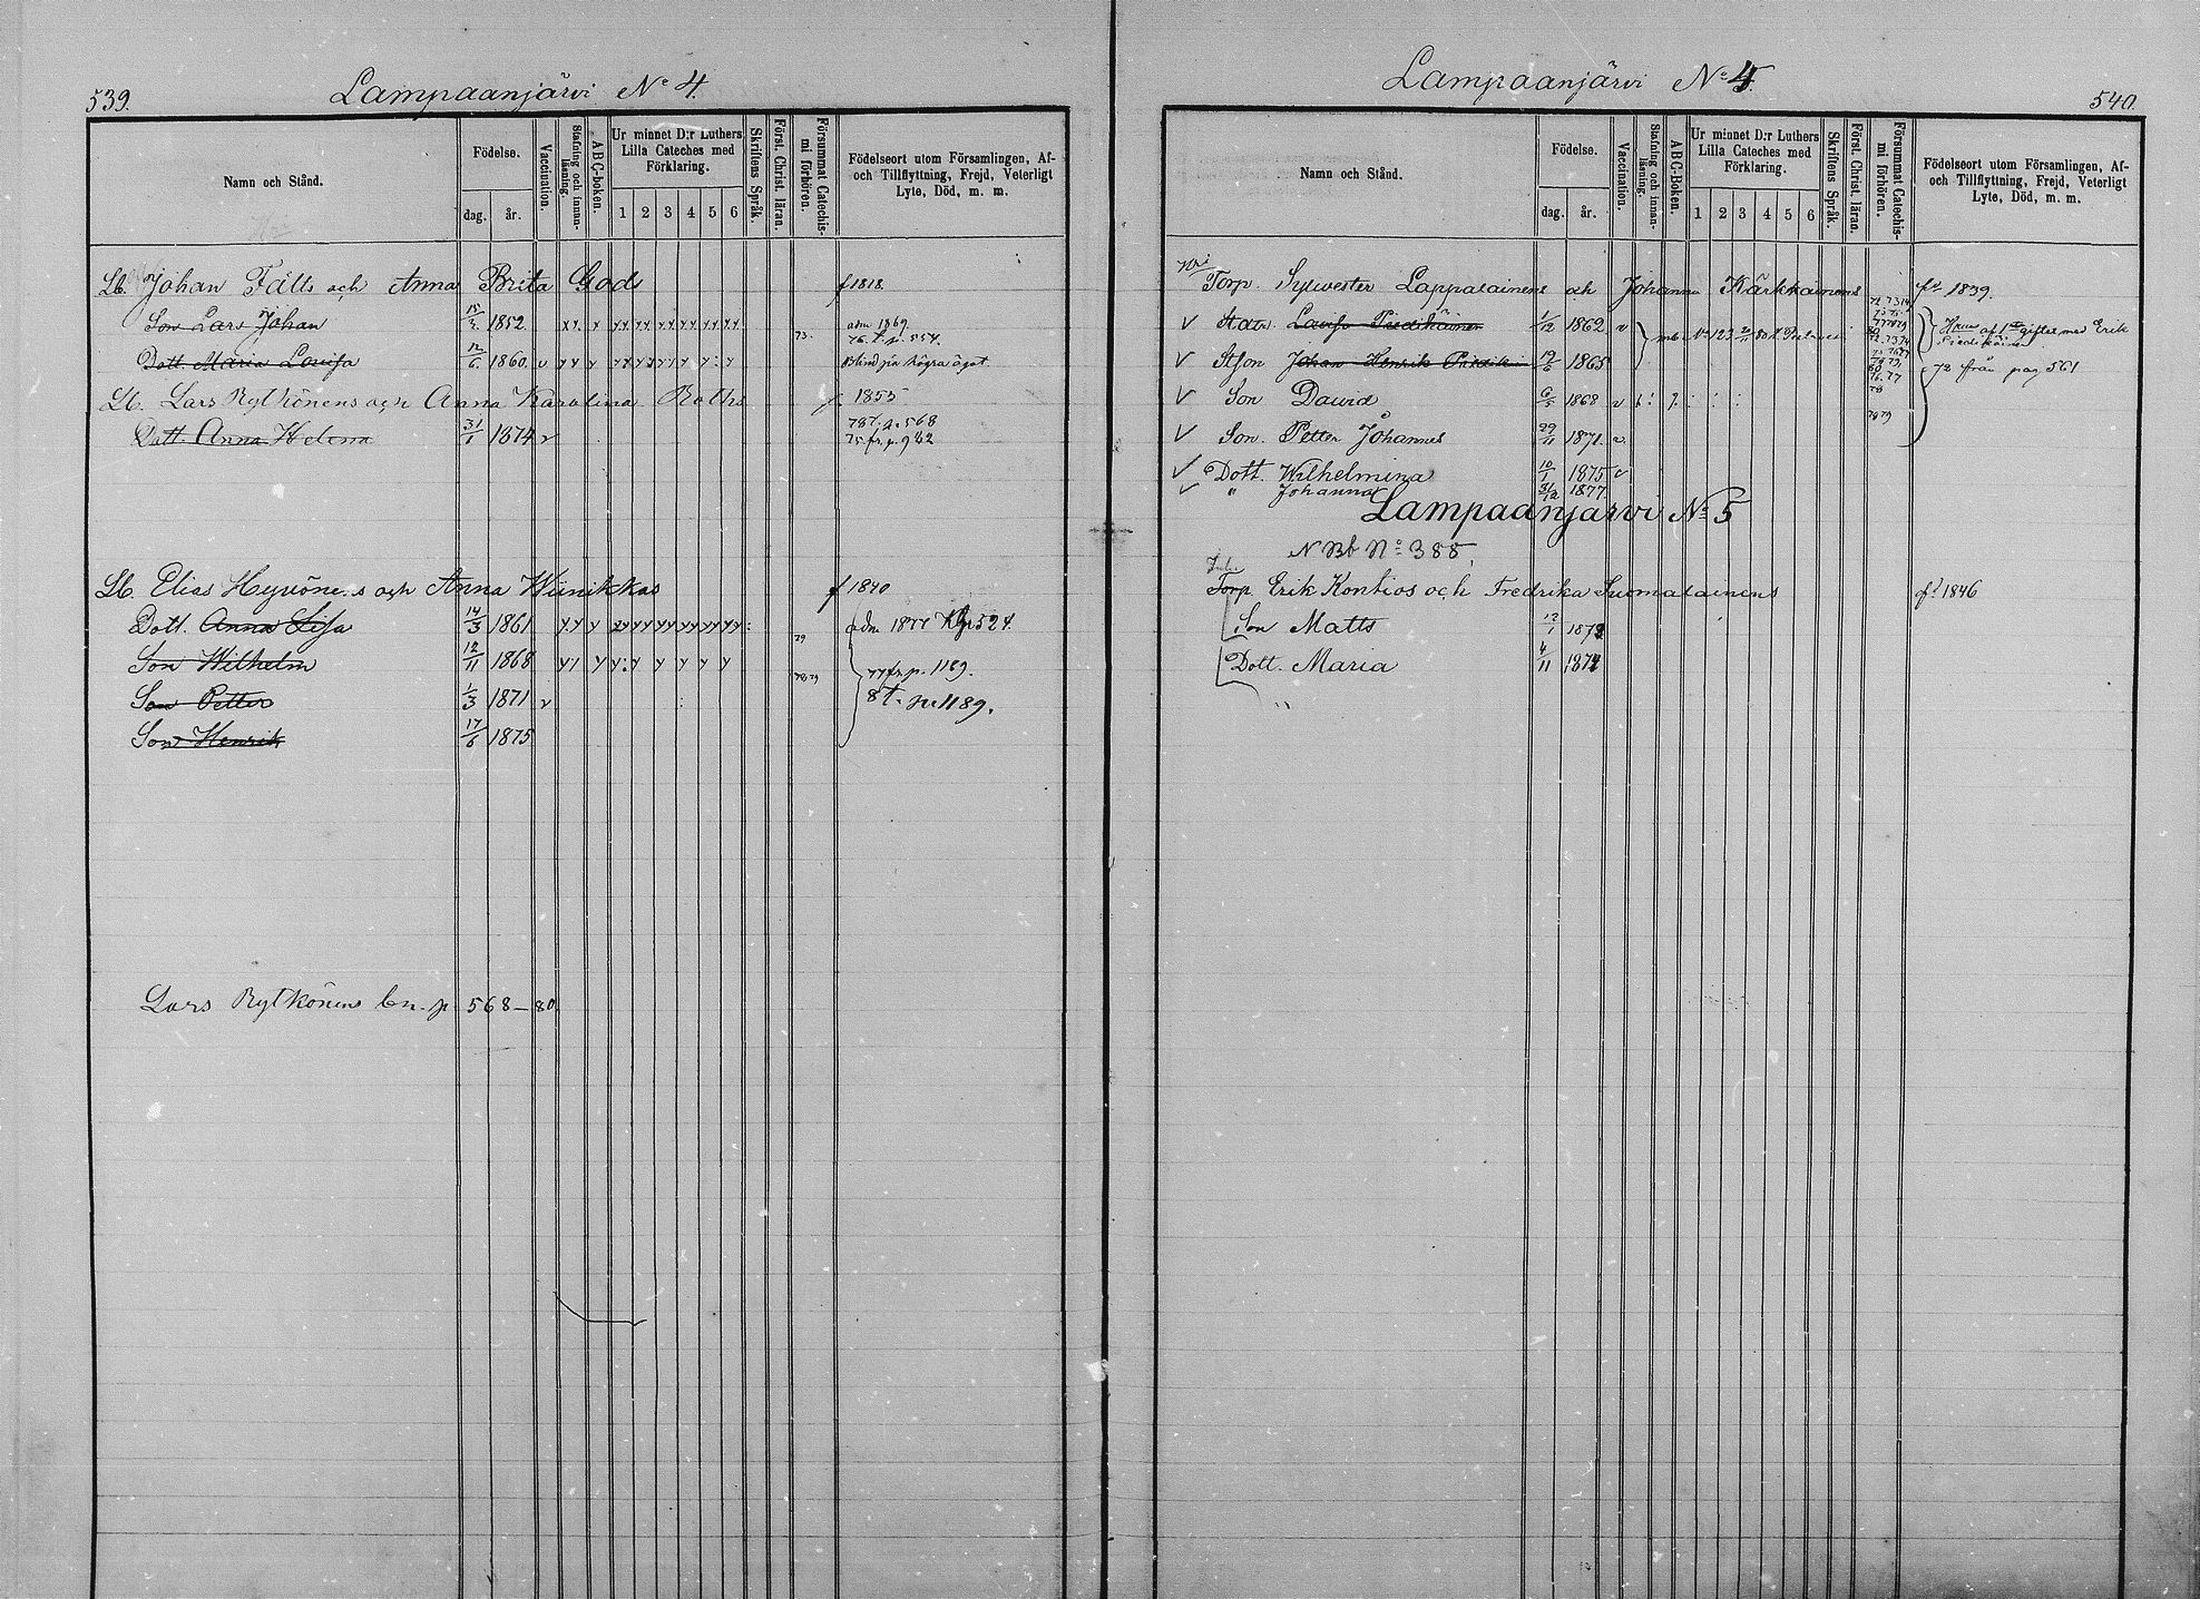 539.
Lampaanjärvi No 4.
Namn och Stånd.
Födelse.
dag. år.
Vaccination.
Stafning och innan-läsning.
ABC-boken.
Ur minnet D:r Luthers Lilla Cateches med Förklaring.
1 2 3 4 5 6
Skriftens Språk.
Först. Christ. läran.
Försummat Catechis-mi förhören.
Födelseort utom Församlingen, Af- och Tillflyttning, Frejd, Veterligt Lyte, Död, m. m.
Lb. Johan Fälts och Anna Brita Gods f 1818.
Son Lars Johan 1852 adm 1869. 76. t. p. 554.
Dott. Maria Lovisa 12/6 1860 v Blind på högra ögat
Lb. Lars Rytkönens och Anna Karolina Roths f. 1853
Dott. Anna Helena 31/1 1874 v 78 t. p. 568 75 fr. p. 942
Lb. Elias Hyvönens och Anna Wiinikkas f 1840
Dott. Anna Lisa 14/3 1861 79 adm 1877
Son Wilhelm 12/11 1868 78 79 77 fr p. 1189.
Son Petter 1/3 1871 v 8 t. p. 1189.
Son Henrik 17/6 1875
Lars Rytkönens bn. p 568–80.
540.
Lampaanjärvi No 4.
Namn och Stånd.
Födelse.
dag. år.
Vaccination.
Stafning och innan-läsning.
ABC-Boken.
Ur minnet D:r Luthers Lilla Cateches med Förklaring.
1 2 3 4 5 6
Skriftens Språk.
Först. Christ. läran.
Försummat Catechis-mi förhören.
Födelseort utom Församlingen, Af- och Tillflyttning, Frejd, Veterligt Lyte, Död, m. m.
Torp. Sylvester Lappalainens och Johanna Kärkkäinens 1839.
1/12 1862 v Hon af 1sta giftet med Erik
Stson Johan Henrik 19/6 1865 72 från pag 561
Son David 6/5 1868 v
Son. Petter Johannes 29/11 1871 v
Dott. Wilhelmina 10/1 1875 v
" Johanna 31/12 1877
Lampaanjärvi No 5
N Bb No 388
Torp Erik Kontios och Fredrika Suomalainens 1846
Son Matts 12/1
Dott. Maria 4/11